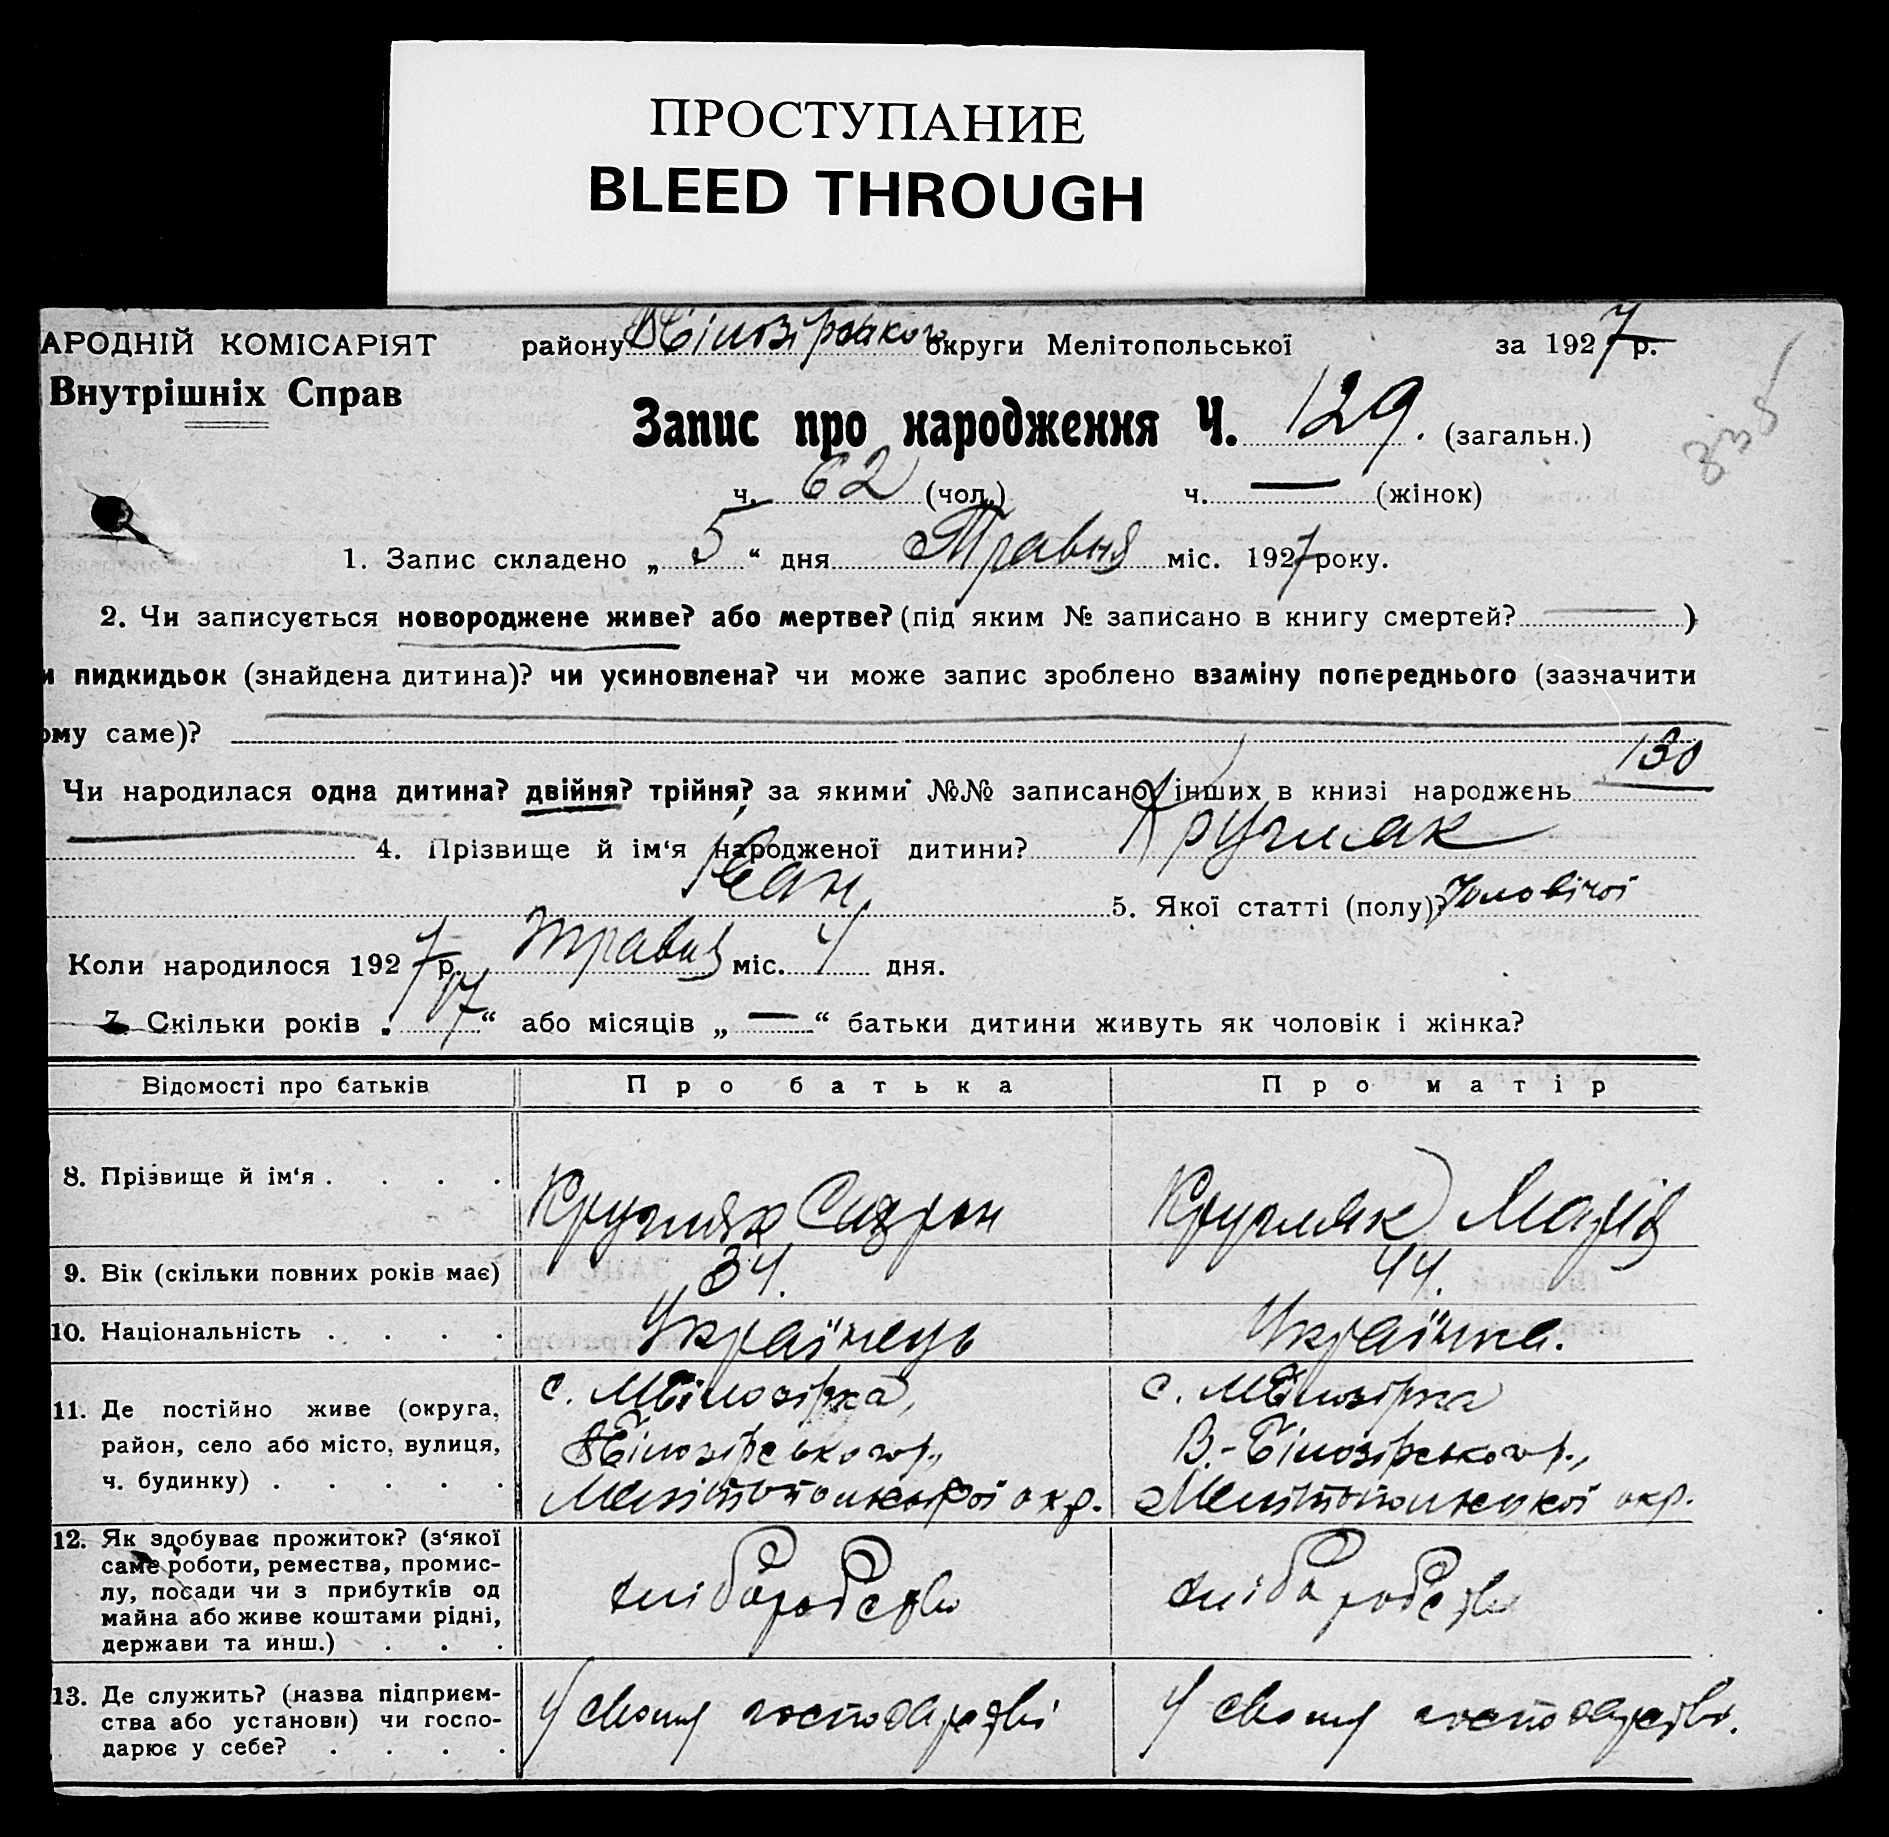 ПРОСТУПАНИЕ
BLEED THROUGH
АРОДНІЙ КОМІСАРІЯТ району ВБілозірського округи Мелітопольської за 1927 р.
Внутрішніх Справ
Запис про народження Ч. 129. (загальн.)
335
ч. 62 (чол.) ч. — (жінок)
1. Запис складено „ 5 “ дня Травня міс. 1927 року.
2. Чи записується новороджене живе? або мертве? (під яким № записано в книгу смертей? )
и пидкидьок (знайдена дитина)? чи усиновлена? чи може запис зроблено взаміну попереднього (зазначити
ому саме)?
Чи народилася одна дитина? двійня? трійня? за якими №№ записано інших в книзі народжень 130
4. Прізвище й ім‘я народженої дитини? Кругляк
Іван 5. Якої статті (полу)? Чоловічої
Коли народилося 1927 р. Травня міс. 4 дня.
7. Скільки років „ 17 “ або місяців „ — “ батьки дитини живуть як чоловік і жінка?
Відомості про батьків Про батька Про матір
8. Прізвище й ім‘я . . . . Кругляк Кругляк Марія
9. Вік (скільки повних років має) 34. 44.
10. Національність . . . . Українець Українка.
11. Де постійно живе (округа, с. МБілозірка, с. МБілозірка
район, село або місто, вулиця, ВБілозірського р., В.-Білозірського р.,
ч. будинку) . . . . . Мелітопольської окр. Мелітопольської окр.
12. Як здобуває прожиток? (з‘якої
саме роботи, ремества, промис-
лу, посади чи з прибутків од хліборобство хліборобство
майна або живе коштами рідні,
держави та инш.) . . .
13. Де служить? (назва підприєм-
ства або установи) чи госпо- У своему господарстві У своему господарстві.
дарює у себе? . . . .